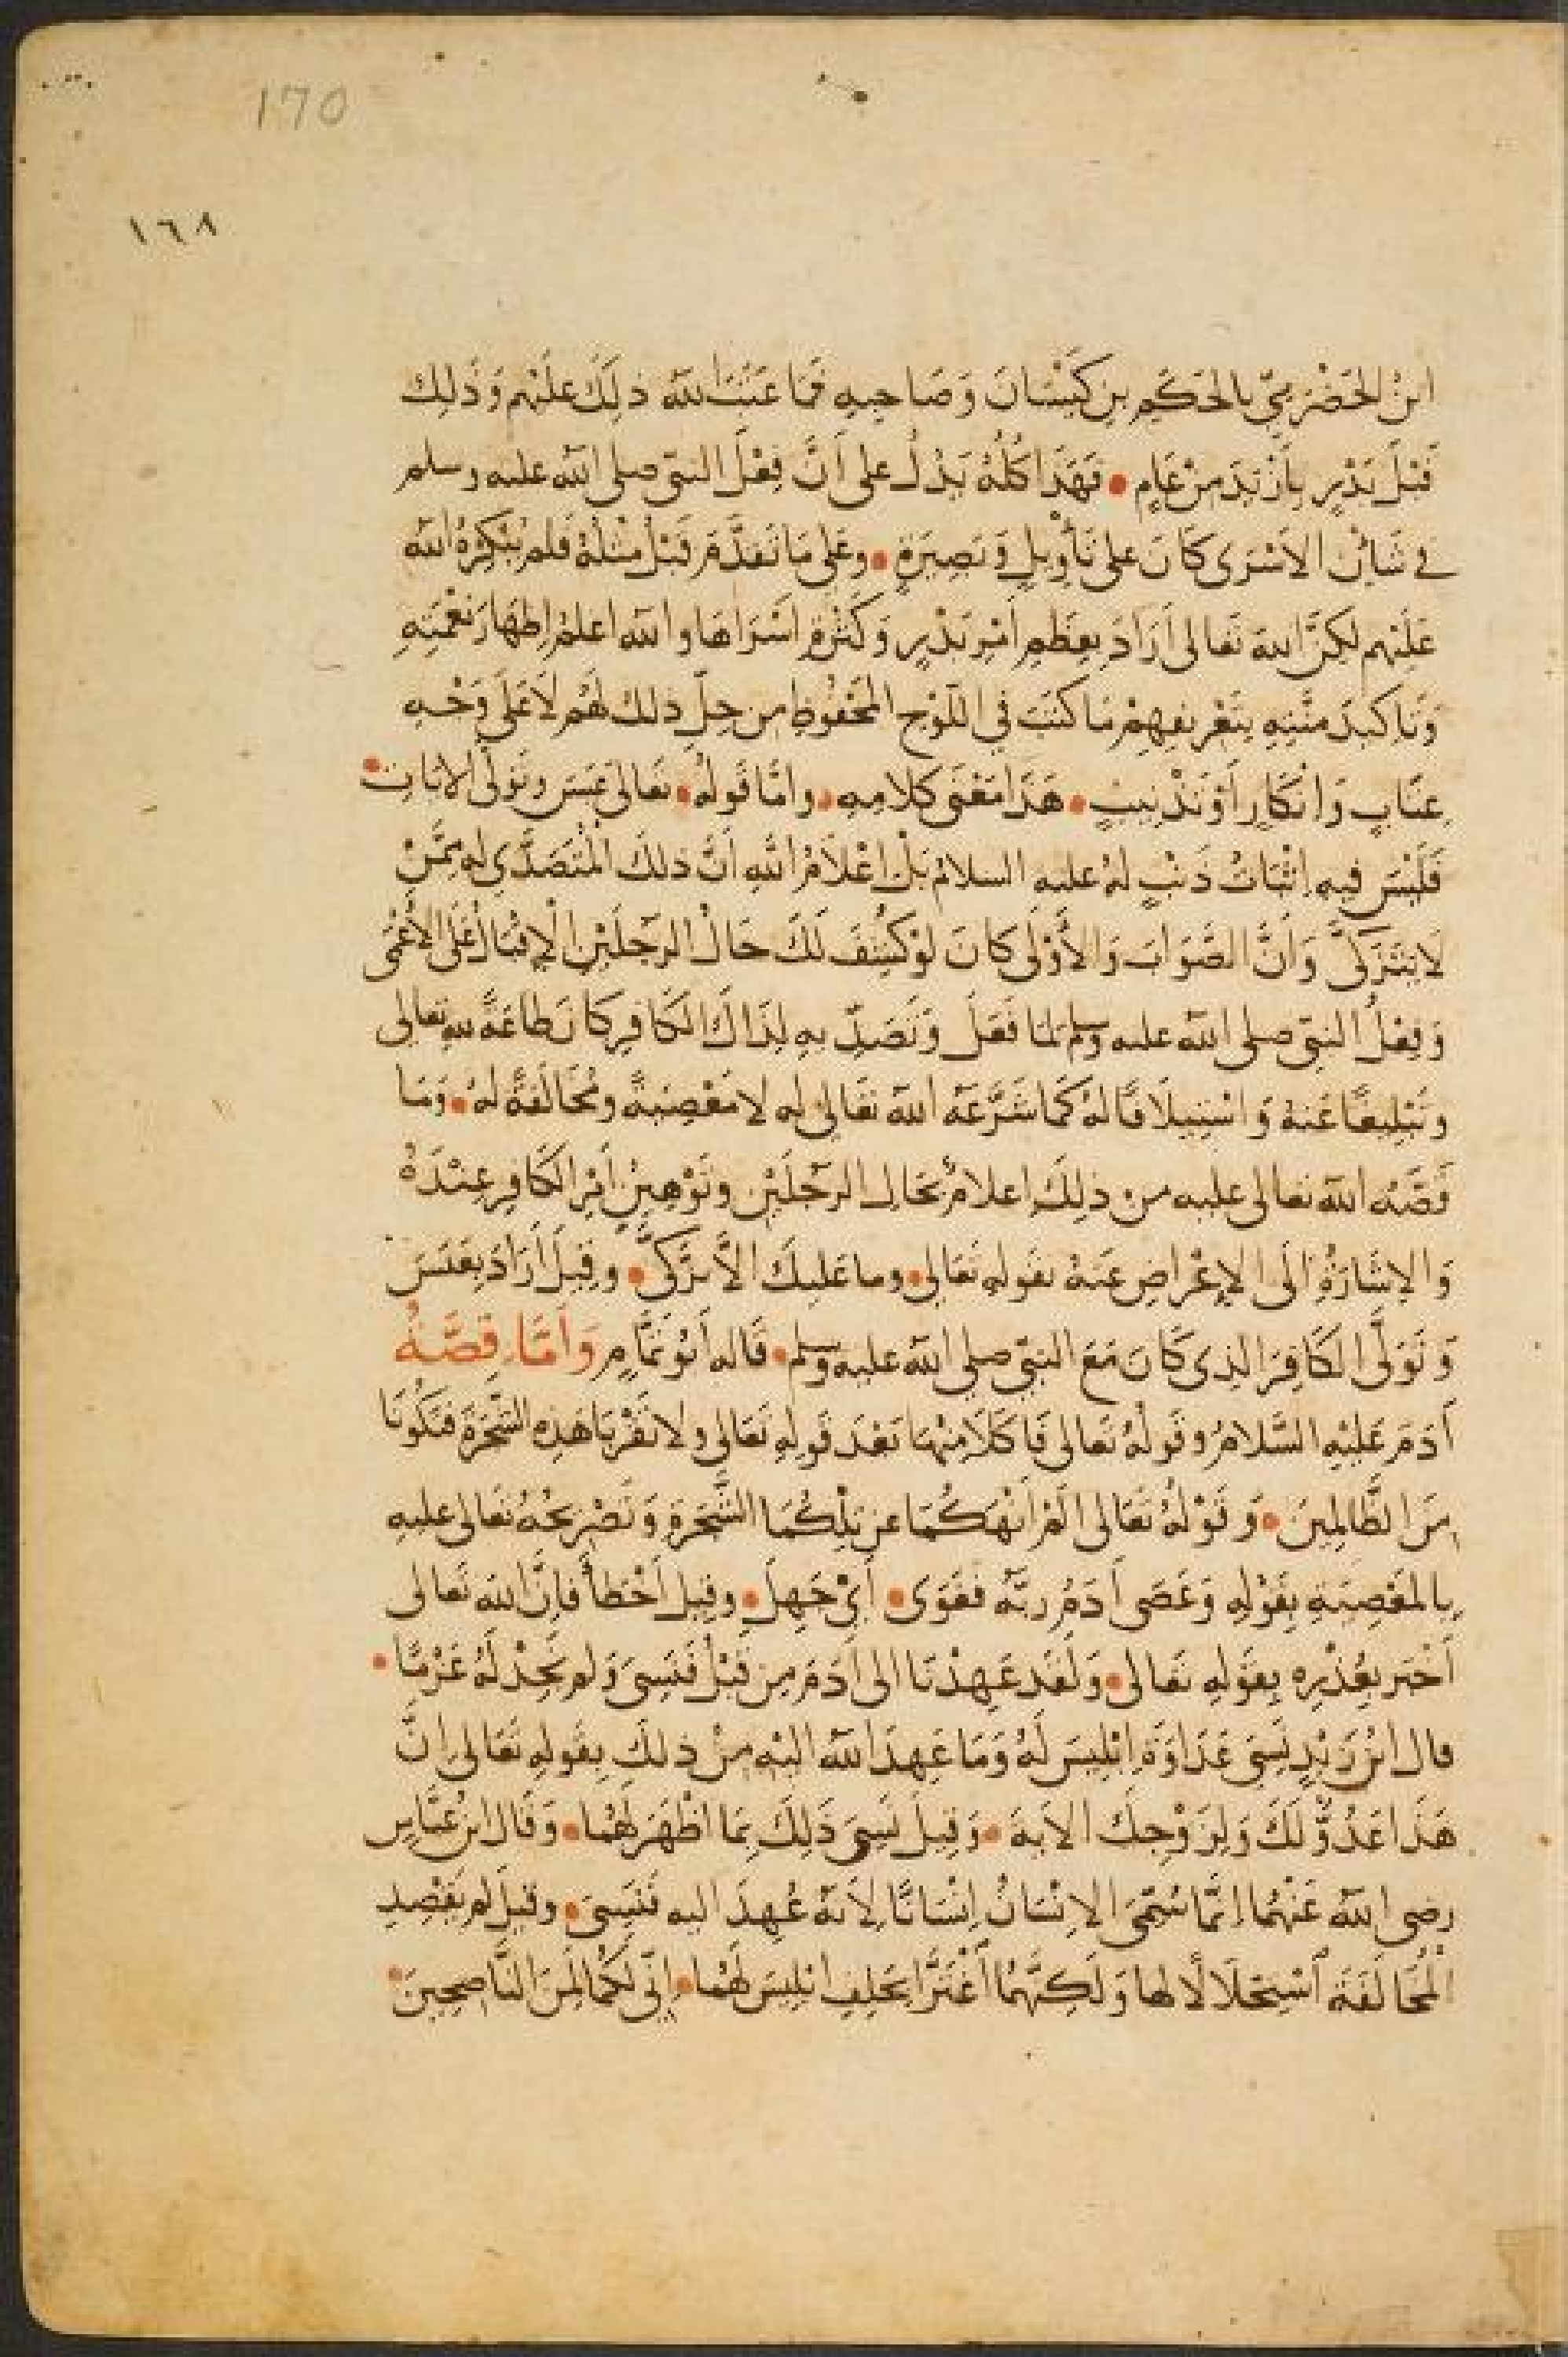 170
١٦٨
ابنُ الحَضْرَمِيّ بالحَكَمِ بنِ كَيْسَانَ وَصَاحِبِهِ فَمَا عَتَبَ اللهُ ذلِكَ عَلَيْهِم وَذَلِك
قَبْلَ بَدْرٍ بِأَزْيَدَ مِنْ عَامٍ • فَهَذَا كُلُّهُ يَدُلُّ على أَنَّ فِعْلَ النبيّ صلى الله عليه وسلم
في شَأْنِ الاَسْرَى كَانَ على تَأْوِيلٍ وَبَصِيرَةٍ • وعَلى مَا تَقَدَّمَ قَبْلُ مِثْلُهُ فلم يُنْكِرْهُ الله
عَلَيْهِم لكِنَّ اللهَ تَعالى أَرَادَ بعِظَمِ اَمْرِ بَدْرٍ وَكَثْرَةِ اَسْرَاهَا والله اعلمُ اِظهَارَ نِعْمَتِهِ
وَتَاكيدَ مِنَّتِهِ بِتَعْرِيفِهِمْ مَا كَتَبَ في اللَّوْحِ المَحْفُوظِ من حِلِّ ذلك لَهُم لَا عَلَى وَجْهِ
عِتَابٍ وَاِنْكَارٍ اَوْ تَذْنِيبٍ • هَذَا مَعْنَى كَلَامِهِ • واَمَّا قَولُهُ • تعَالى عَبَسَ وتَوَلَّى الاٰيَاتِ •
فَلَيْسَ فيهِ اِثْبَاتُ ذَنْبٍ لهُ عليه السلامُ بَلْ اِعْلَامُ اللهِ اَنَّ ذلكَ المُتَصَدَّى له مِمَّنْ
لَا يَتَزَكَّى وَأَنَّ الصَّوَابَ وَالأَوْلَى كانَ لَوْ كُشِفَ لَكَ حَالُ الرَّجُلَيْنِ الْاِقْبَالُ عَلَى الاَعْمَى
وَفِعْلُ النبيّ صلى الله عليه وسلم لمَا فَعَلَ وَتَصَدِّيهِ لِذَاكَ الكَافِرِ كَانَ طاعَةً للهِ تعالى
وتَبْلِيغًا عَنهُ وَاسْتِيلَافًا لهُ كَمَا شَرَعَهُ الله تعَالى له لا مَعْصِيَةً ومُخَالَفَةً لهُ • وَمَا
قَصَّهُ الله تعالى عليه من ذلِكَ اِعلامٌ بحَالِ الرَّجُلَيْنِ وتَوْهِينِ أَمْرِ الكَافِرِ عِنْدَهُ
وَالاِشَارَةِ اِلَى الاِعْرَاضِ عَنهُ بقولهِ تَعَالى • وما عَليكَ اَلَّا يَزَّكَّى • وقِيلَ أَرَادَ بِعَبَسَ
وَتَوَلَّى الكَافِرَ الذِى كَانَ مَعَ النبيّ صلى الله عليه وسلم • قَاله أَبُو تَمَّامٍ وَأَمَّا قِصَّةُ
آدَمَ عَلَيْهِ السَّلامُ وقَولُهُ تَعالى فَاكَلَا مِنْهَا بَعْدَ قَولِهِ تَعَالى ولا تَقْرَبَا هذِهِ الشَّجَرَةَ فَتَكُونَا
مِنَ الظَّالِمِينَ • وَقَوْلُهُ تَعَالى اَلَمْ اَنْهَكُمَا عن تِلْكُمَا الشَّجَرَةِ وَتَصْرِيحُهُ تَعالى عليهِ
بِالمَعْصِيَةِ بِقَوْلِهِ وَعَصَى آدَمُ رَبَّهُ فَغَوَى • أَيْ جَهِلَ • وقيل أَخْطَأَ فإِنَّ الله تَعالى
أَخْبَر بِعُذْرِه بِقَولهِ تَعالى • وَلَقَد عَهِدْنَا الى آدَمَ مِن قَبْلُ فَنَسِيَ وَلم نَجِدْ لَهُ عَزْمًا •
قال ابنُ زَيْدٍ نَسِيَ عَدَاوَةَ اِبْلِيسَ لَهُ وَمَا عَهِدَ اللهُ اليْهِ مِنْ ذلكَ بِقَولِهِ تَعَالى اِنَّ
هَذَا عَدُوٌّ لَكَ وَلِزَوْجِكَ الاٰيةَ • وَقِيلَ نَسِيَ ذَلِكَ بِمَا اَظْهَرَ لَهُمَا • وَقَال ابنُ عَبَّاسٍ
رضى الله عَنْهُما اِنَّمَا سُمِّيَ الاِنْسَانُ اِنْسَانًا لِاَنَّهُ عُهِدَ اليهِ فَنَسِىَ • وقيلَ لم يَقْصِدِ
الْمُخَالَفَةَ ٱسْتِحْلَالًا لها وَلَكِنَّهُمَا ٱغْتَرَّا بحَلِفِ ابْلِيسَ لَهُمَا • اِنّي لَكُمَا لَمِنَ النَّاصِحِينَ •